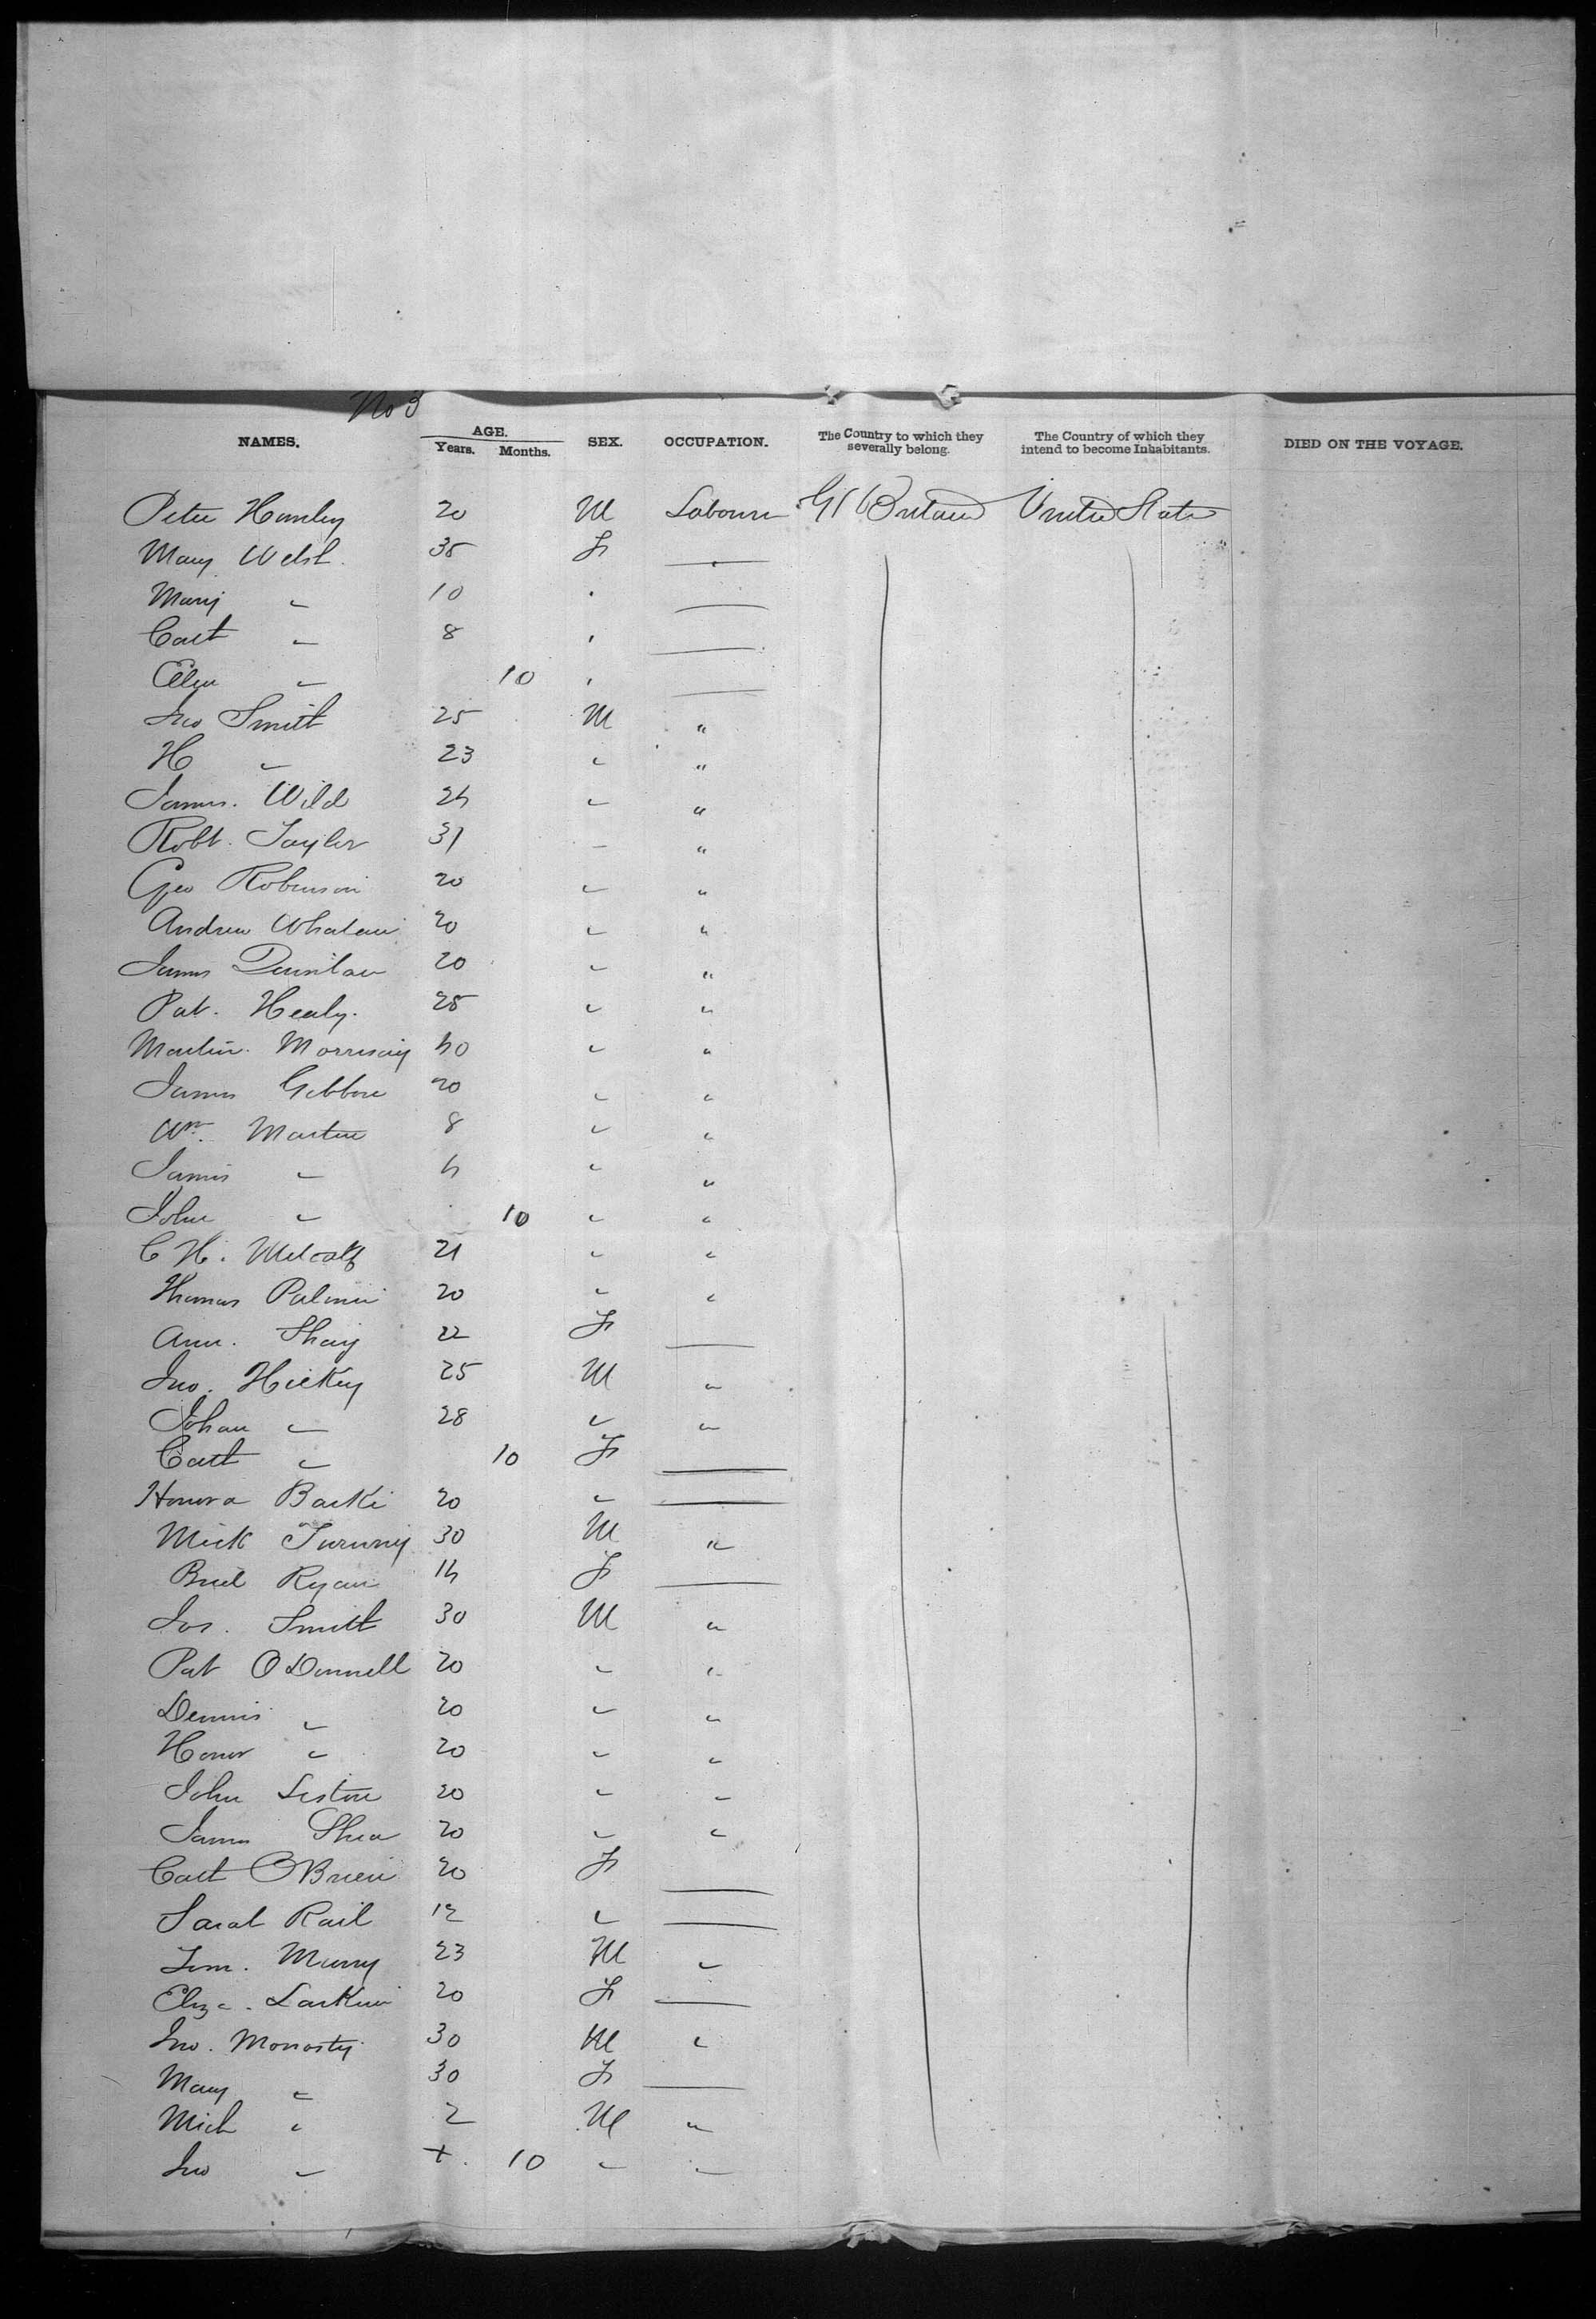 No 3
NAMES. AGE. Years. Months. SEX. OCCUPATION. The Country to which they severally belong. The Country of which they intend to become Inhabitants. DIED ON THE VOYAGE.
Peter Hanley 20 M Labourer Gt Britain United States
Mary Welsh 35 F —
Mary " 10 " —
Cath " 8 " —
Ellen " 10 " —
Jno Smith 25 M "
H " 23 " "
James. Wild 24 " "
Robt. Taylor 31 " "
Geo Robinson 20 " "
Andrew Whalan 20 " "
James 20 " "
Pat. Healy. 25 " "
Martin. Morrisay 40 " "
James Gibbon 20 " "
Wm. Martin 8 " "
James " 4 " "
John " 10 " "
C H. Metcalf 21 " "
Thomas Palmer 20 " "
Ann. Shay 22 F —
Jno. Hickey 25 M "
Johan " 28 " "
Cath " 10 F —
Honora 20 " —
Mick 30 M "
Brid Ryan 14 F —
Jos. Smith 30 M "
Pat O Donnell 20 " "
Dennis " 20 " "
Honor " 20 " "
John Liston 20 " "
James Shea 20 " "
Cath O Brien 20 F —
Sarah Rail 12 " —
Murry 23 M "
Eliza. Larkin 20 F —
Jno. 30 M "
Mary " 30 F —
Mich " 2 M "
Jno " + 10 " "